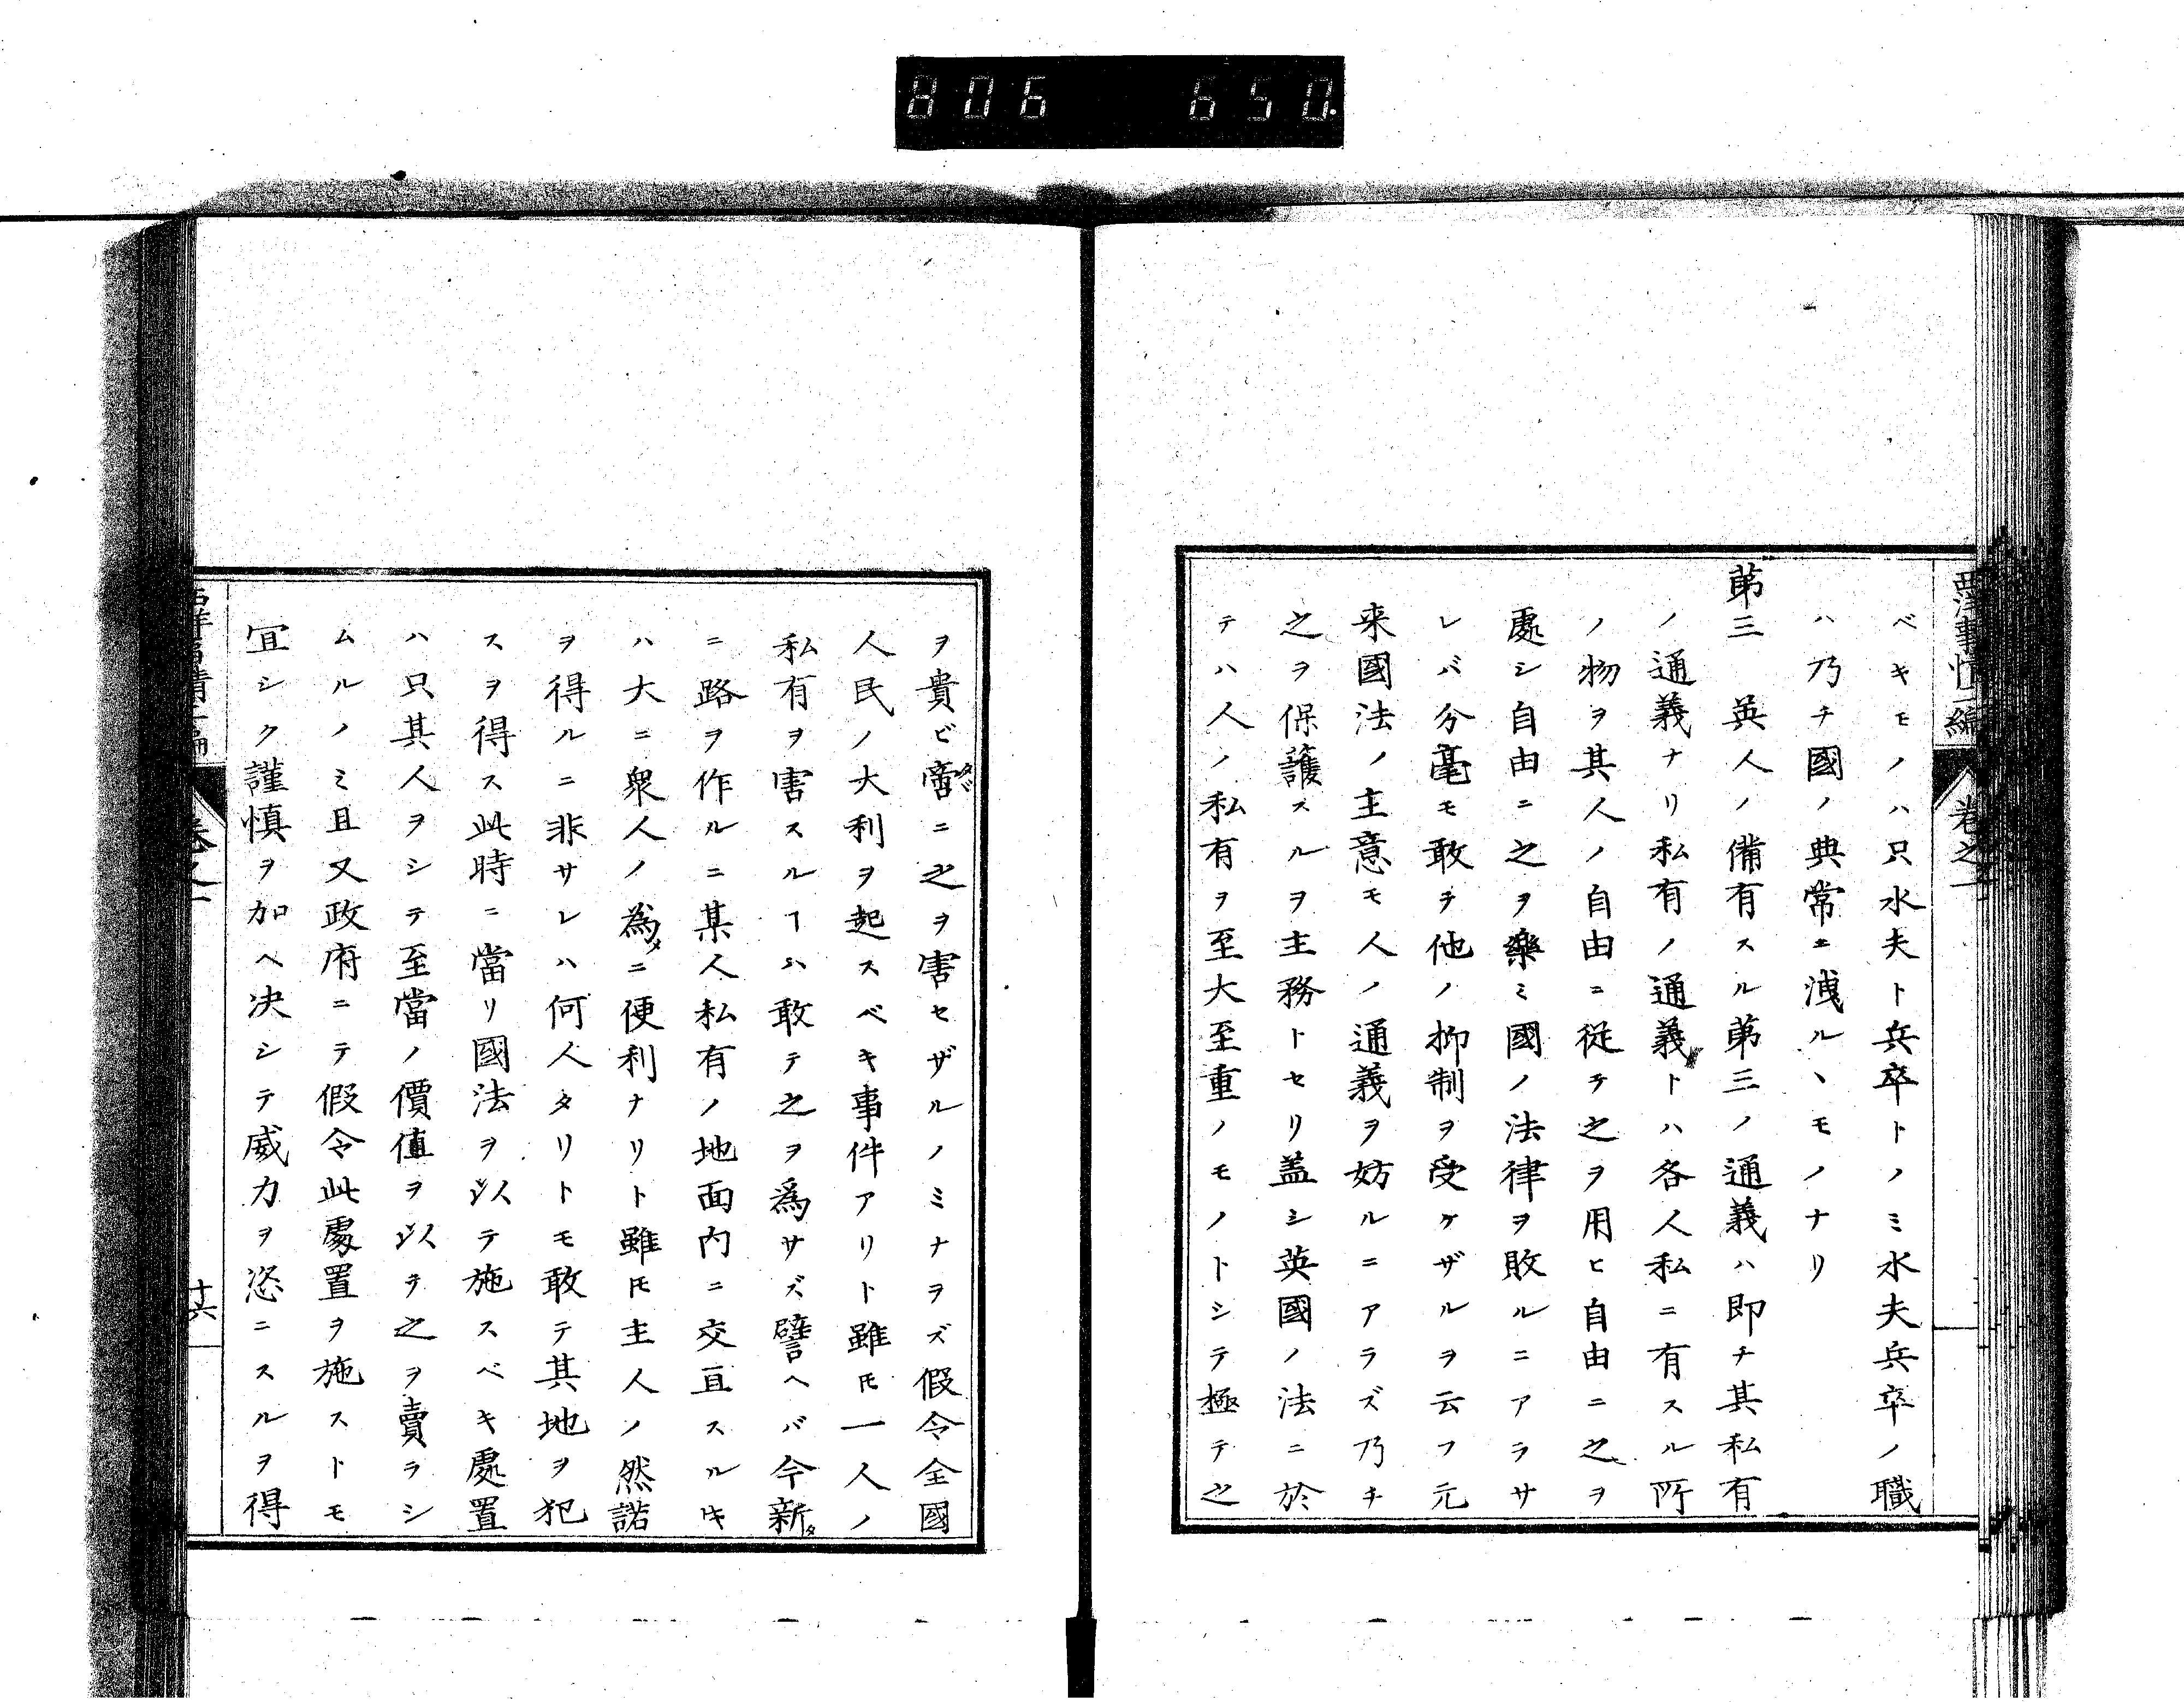 806 650.
西洋事情二編 卷之一
ベキモノハ只水夫ト兵卒トノミ水夫兵卒ノ職
ハ乃チ國ノ典常ニ洩ルヽモノナリ
第三 英人ノ備有スル第三ノ通義ハ即チ其私有
ノ通義ナリ私有ノ通義トハ各人私ニ有スル所
ノ物ヲ其人ノ自由ニ従テ之ヲ用ヒ自由ニ之ヲ
處シ自由ニ之ヲ樂ミ國ノ法律ヲ敗ルニアラサ
レバ分毫モ敢テ他ノ抑制ヲ受ケザルヲ云フ元
来國法ノ主意モ人ノ通義ヲ妨ルニアラズ乃チ
之ヲ保護スルヲ主務トセリ盖シ英國ノ法ニ於
テハ人ノ私有ヲ至大至重ノモノトシテ極テ之
ヲ貴ビ啻タヾニ之ヲ害セザルノミナヲズ假令全國
人民ノ大利ヲ起スベキ事件アリト雖𪜈一人ノ
私有ヲ害スルヿハ敢テ之ヲ爲サズ譬ヘバ今新タ
ニ路ヲ作ルニ某人私有ノ地面内ニ交亘スルㇳキ
ハ大ニ衆人ノ為メニ便利ナリト雖𪜈主人ノ然諾
ヲ得ルニ非サレハ何人タリトモ敢テ其地ヲ犯
スヲ得ス此時ニ當リ國法ヲ以テ施スベキ處置
ハ只其人ヲシテ至當ノ價値ヲ以テ之ヲ賣ラシ
ムルノミ且又政府ニテ假令此處置ヲ施ストモ
冝シク謹慎ヲ加ヘ決シテ威力ヲ恣ニスルヲ得
西洋事情二編 卷之一 十六